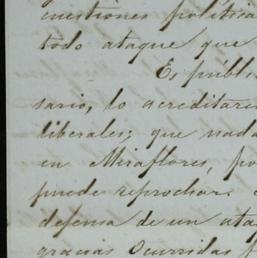 cuestiones politica
todo ataque que
Es públi
sario, lo acreditare
liberales; que nad
en Miraflores, po
puede reprochar.
defensa de un ata
gracias ocurridas